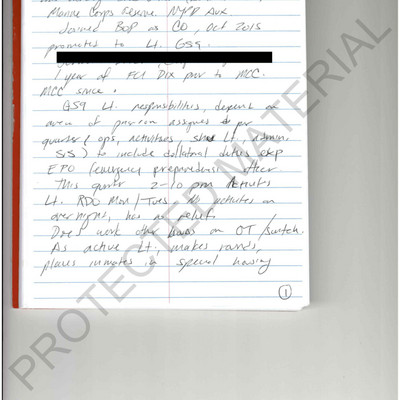 Marine Corps Reserve NYPD Aux.
Joined BoP as CO, Oct 2015
promoted to Lt. GS9.
1 year at FCI DIX prior to MCC.
MCC since.
GS9 Lt. responsibilities, depends on
area of prison assigned per
quarter (ops, activities, Lt, admin,
SIS) to include collateral duties
EPO (emergency preparedness officer
This quarter 2-10 pm Activities
Lt. RDO Mon/Tues. No activities on
overnight, has no relief.
Does work other hours on OT/switch.
As active Lt., makes rounds,
places inmates in special housing
1
PROTECTED MATERIAL